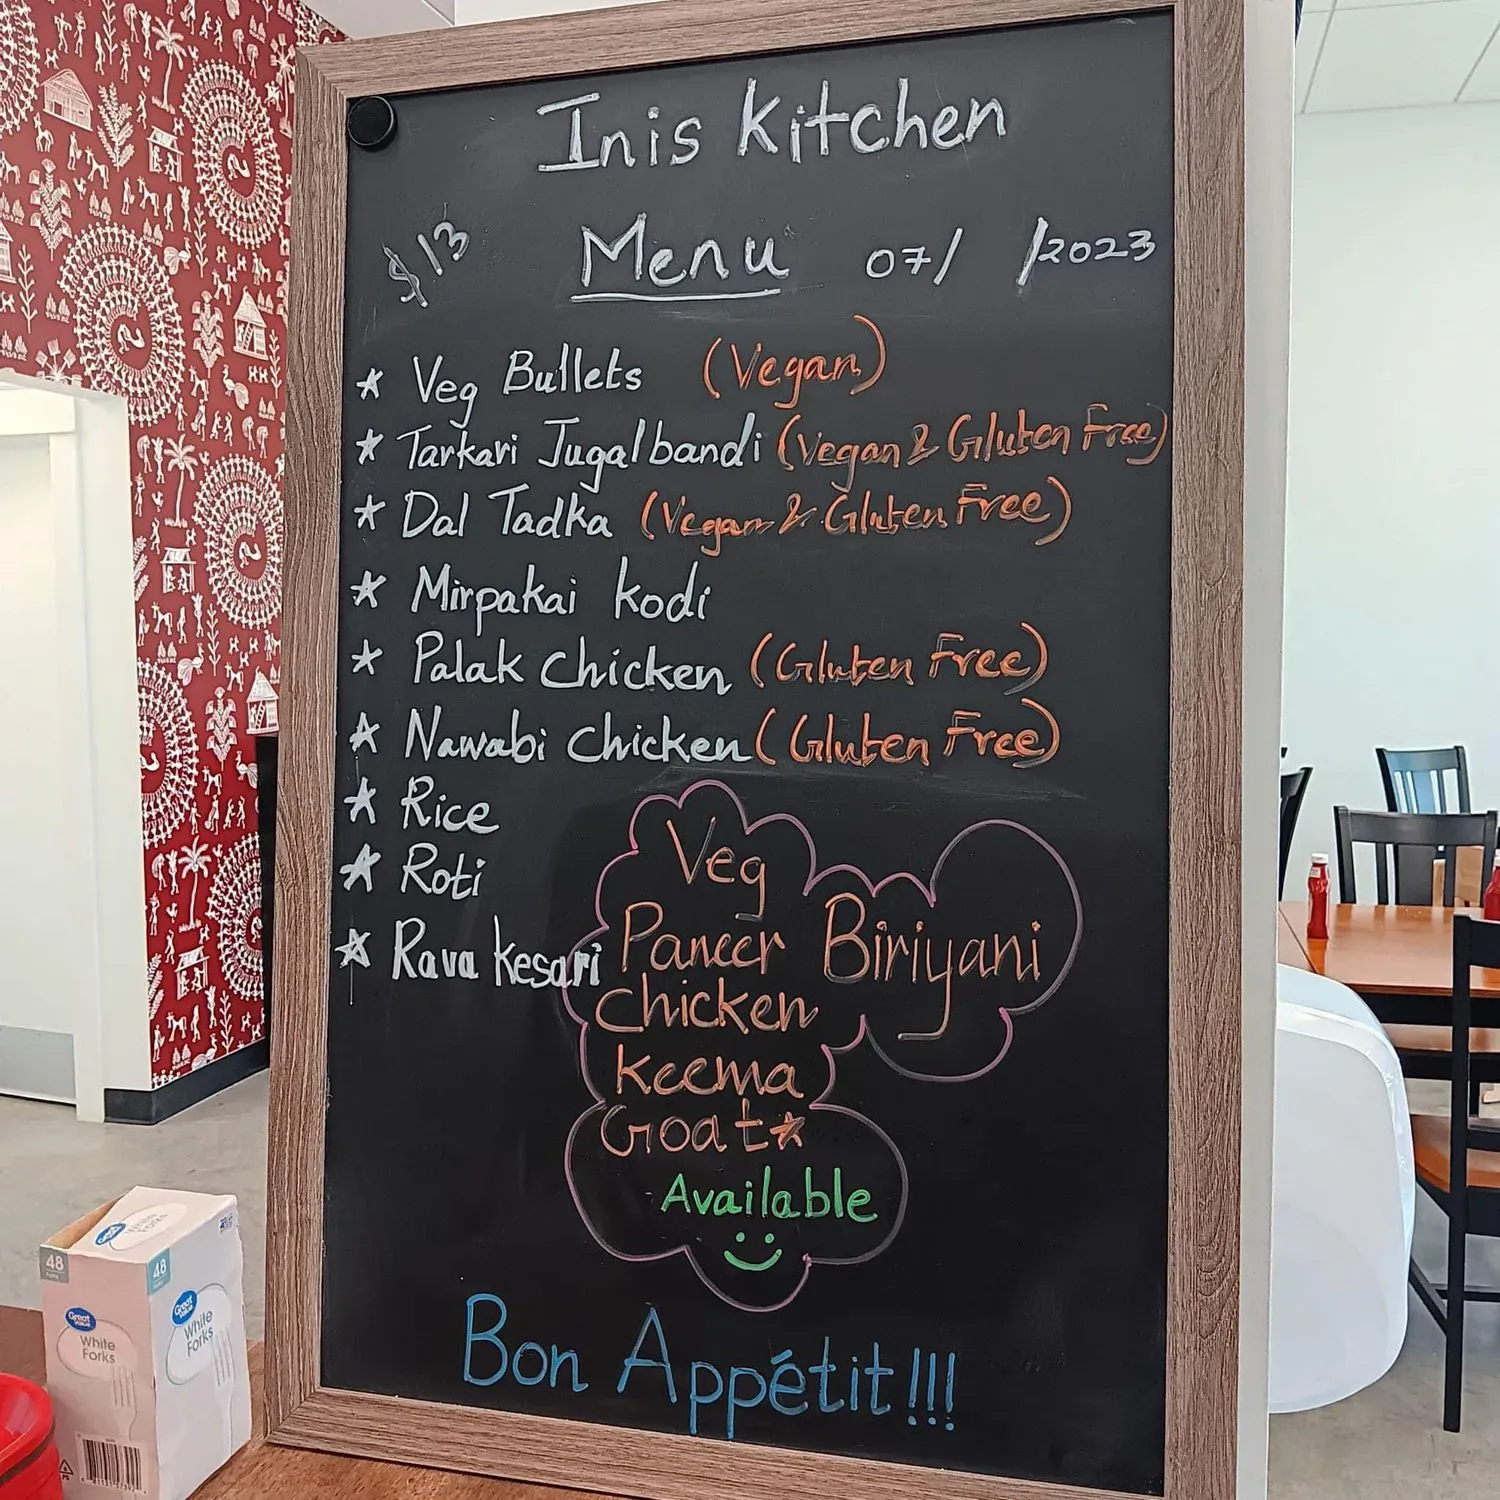 Inis Kitchen
$13 Menu 07/ /2023
☆ Veg Bullets (Vegan)
☆ Tarkari Jugalbandi (Vegan & Gluten Free)
☆ Dal Tadka (Vegan & Gluten Free)
☆ Mirpakai Kodi
☆ Palak Chicken (Gluten Free)
☆ Nawabi Chicken (Gluten Free)
☆ Rice
☆ Roti
☆ Rava Kesari
Veg
Paneer Biriyani
Chicken
Keema
Goat☆
Available
Bon Appétit!!!
48
48
Great Value
White
Forks
Great Value
White
Forks